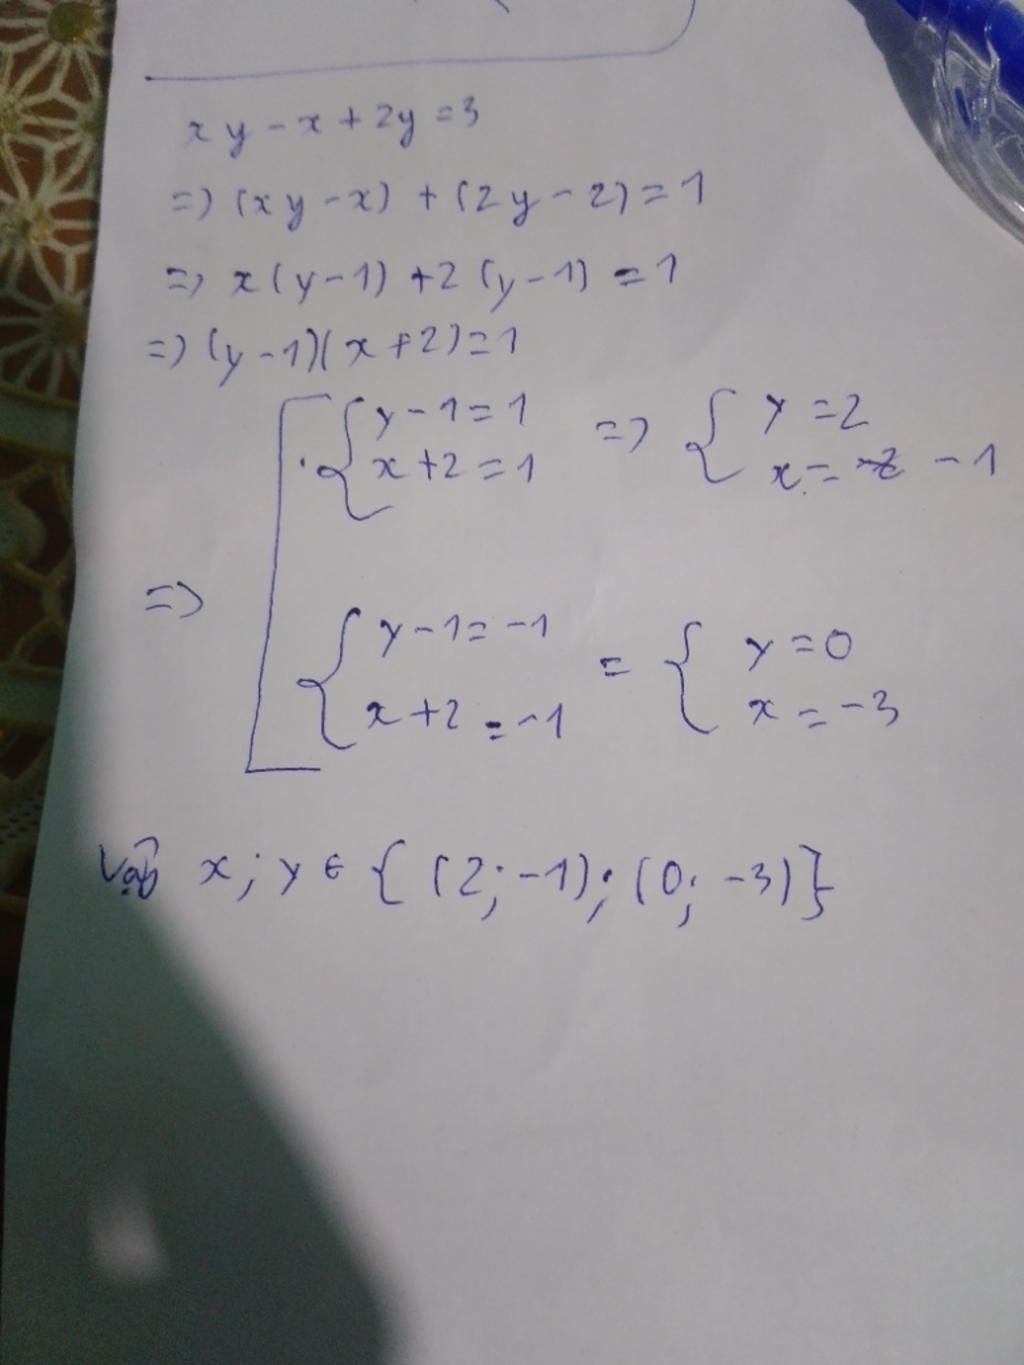 xy - x + 2y = 3
=> (xy - x) + (2y - 2) = 1
=> x(y - 1) + 2(y - 1) = 1
=> (y - 1)(x + 2) = 1
y - 1 = 1 => y = 2
x + 2 = 1 x = -1
=>
y - 1 = -1 = y = 0
x + 2 = -1 x = -3
Vậy x; y ∈ {(2; -1); (0; -3)}